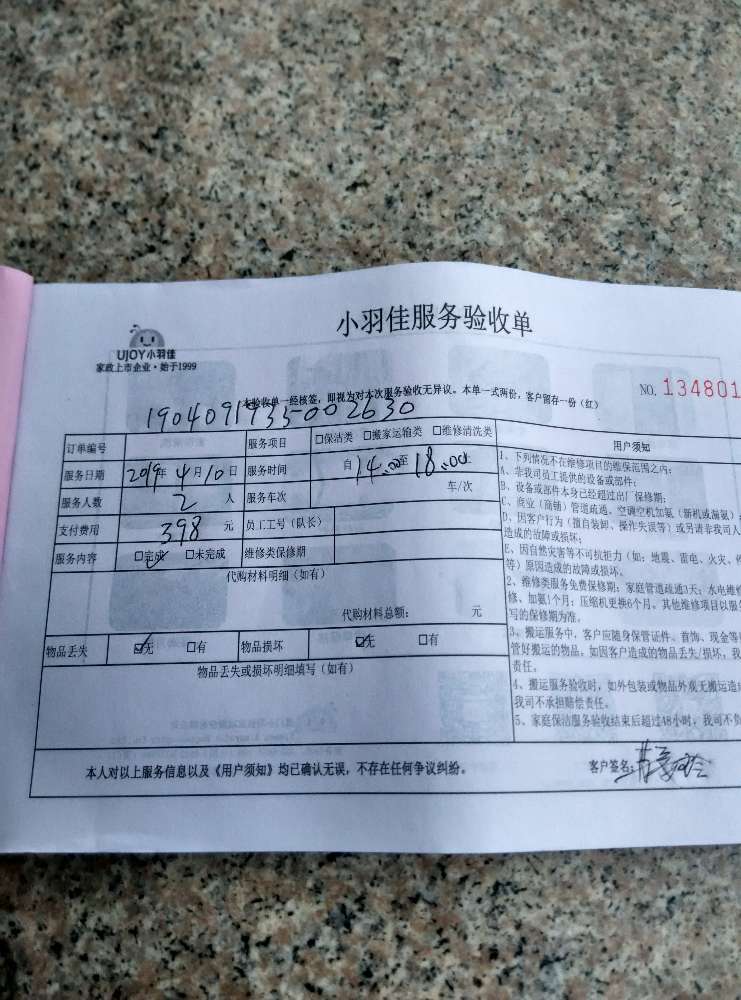 小羽佳服务验收单
UJOY小羽佳
家政上市企业·始于1999
本验收单一经核签，即视为对本次服务验收无异议。本单一式两份，客户留存一份（红）
NO. 134801
订单编号 1904091935002630 服务项目 □保洁类 □搬家运输类 □维修清洗类
服务日期 2019年4月10日 服务时间 自14:00至18:00止
服务人数 2 人 服务车次 车/次
支付费用 398 元 员工工号（队长）
服务内容 ☑完成 □未完成 维修类保修期
代购材料明细（如有）
代购材料总额： 元
物品丢失 ☑无 □有 物品损坏 ☑无 □有
物品丢失或损坏明细填写（如有）
用户须知
1、下列情况不在维修项目的维保范围之内：
A、非我司员工提供的设备或部件；
B、设备或部件本身已经超过出厂保修期；
C、商业（商铺）管道疏通、空调空机加氨（新机或漏氨）
D、因客户行为（擅自装卸、操作失误等）或另请非我司人
造成的故障或损坏；
E、因自然灾害等不可抗拒力（如：地震、雷电、火灾、
等）原因造成的故障或损坏。
2、维修类服务免费保修期：家庭管道疏通3天；水电维
修、加氨1个月；压缩机更换6个月。其他维修项目以服
写的保修期为准。
3、搬运服务中，客户应随身保管证件、首饰、现金等
管好搬运的物品，如因客户造成的物品丢失/损坏，我
责任。
4、搬运服务验收时，如外包装或物品外观无搬运造
我司不承担赔偿责任。
5、家庭保洁服务验收结束后超过48小时，我司不
本人对以上服务信息以及《用户须知》均已确认无误，不存在任何争议纠纷。 客户签名：